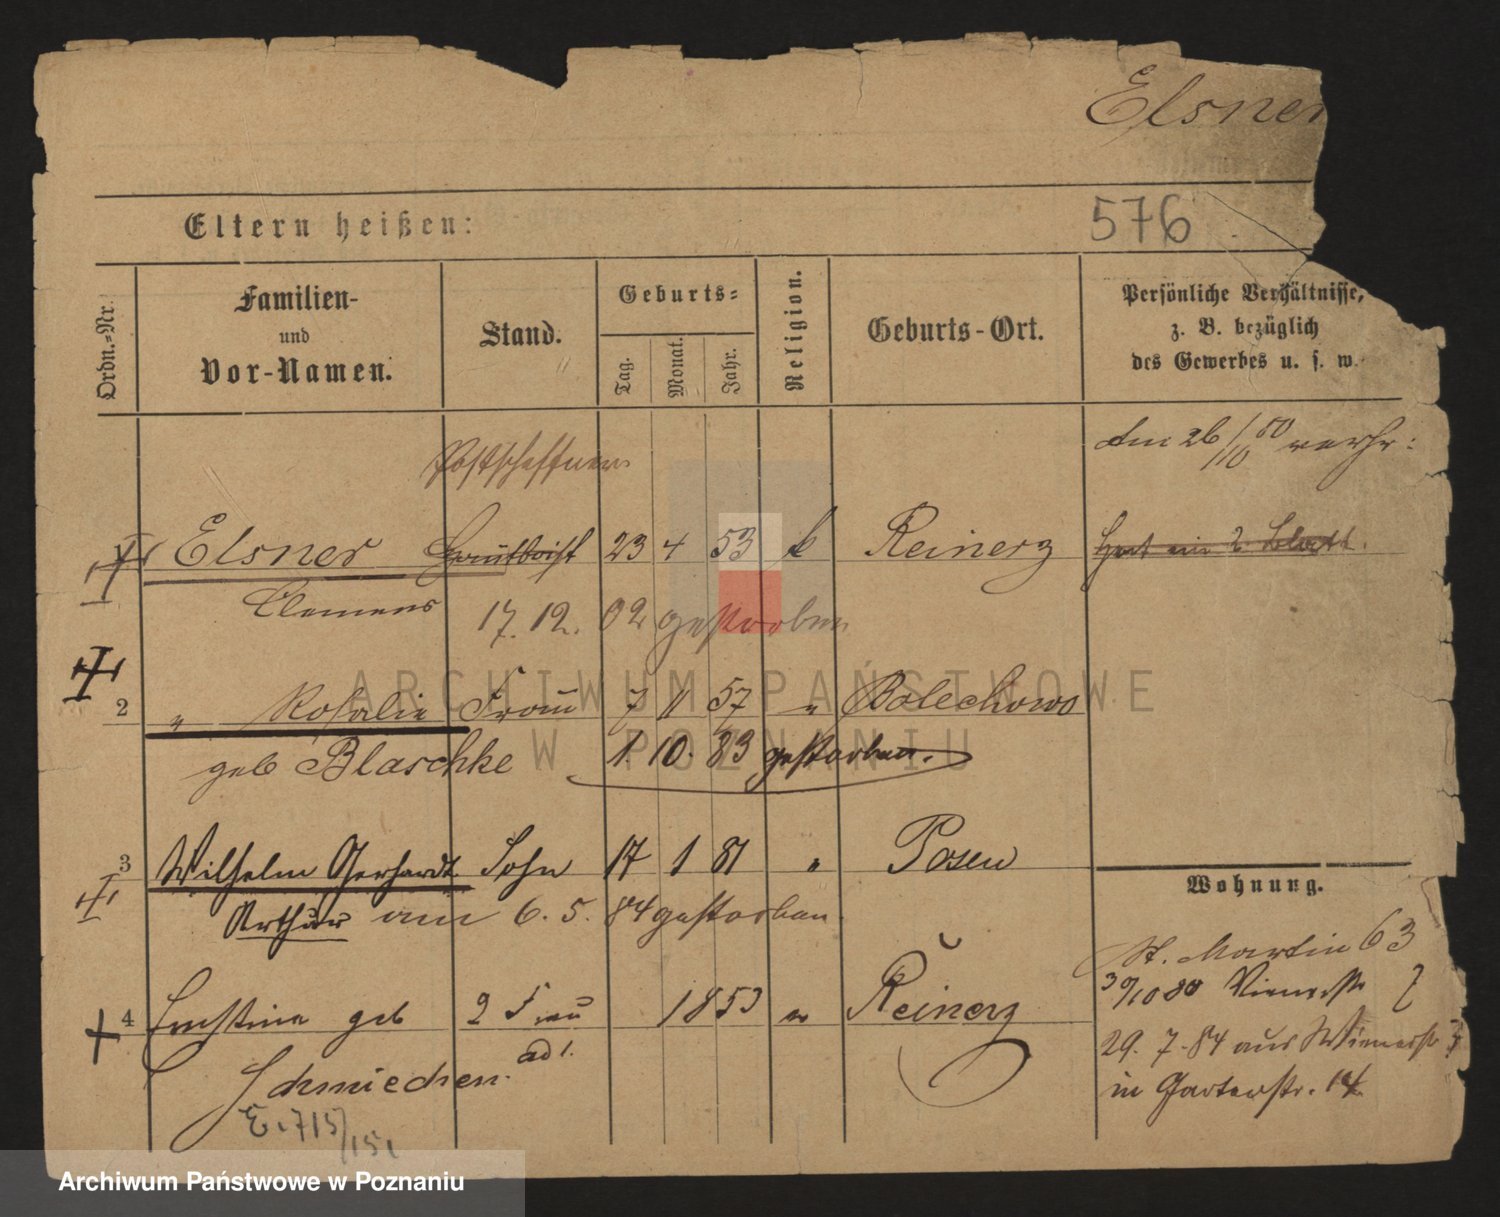 Elsner
Eltern heißen:
576
Ordn.-Nr.
Familien-
und
Vor-Namen.
Stand.
Geburts-
Tag.
Monat.
Jahr.
Religion.
Geburts-Ort.
Persönliche Verhältnisse,
z. B. bezüglich
des Gewerbes u. s. w.
am 26/10 80 verhr:
Postschaffner
Elsner Hautboist 23 4 53 k Reinerz
Clemens 17. 12. 02 gestorben
2 " Rosalie Frau 7 1 57 " Bolechowo
geb Blaschke 1. 10. 83 gestorben.
3 Wilhelm Gerhardt Sohn 17 1 81 " Posen
Arthur am 6. 5. 84 gestorben.
Wohnung.
St. Martin 63
30/10 80 Wienerstr
4 Ernstine geb 2 Frau 1853 " Reinerz
ad 1.
29. 7. 84 aus Wienerstr
Schmiechen.
in Gartenstr. 14
E. 715/15
ARCHIWUM PAŃSTWOWE
W POZNANIU
Archiwum Państwowe w Poznaniu